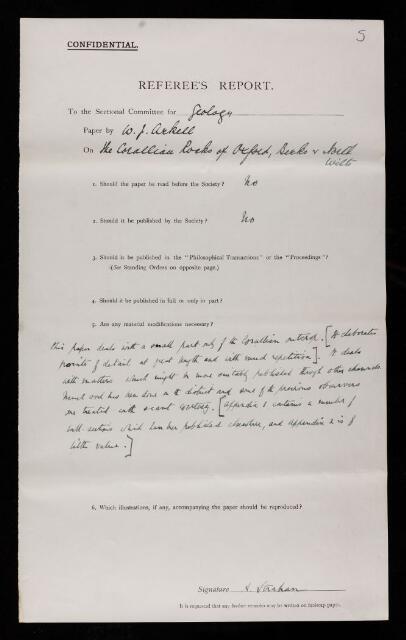 5
CONFIDENTIAL.
REFEREE'S REPORT.
To the Sectional Committee for Geology
Paper by W. J. Arkell
On The Corallian Rocks of Oxford, Berks & North
Wilts
1. Should the paper be read before the Society? No
2. Should it be published by the Society? No
3. Should it be published in the "Philosophical Transactions" or the "Proceedings"?
(See Standing Orders on opposite page.)
4. Should it be published in full or only in part?
5. Are any material modifications necessary?
This paper deals with a small part only of the Corallian outcrop. [It elaborates
points of detail at great length and with much repetition]. It deals
with matters which might be more suitably published through other channels
Much good has been done in the district and some of the previous observers
are treated with scant courtesy. [Appendix 1 contains a number of
well sections which have been published elsewhere, and appendix 2 is of
little value.]
6. Which illustrations, if any, accompanying the paper should be reproduced?
Signature A. Strahan
It is requested that any further remarks may be written on foolscap paper.